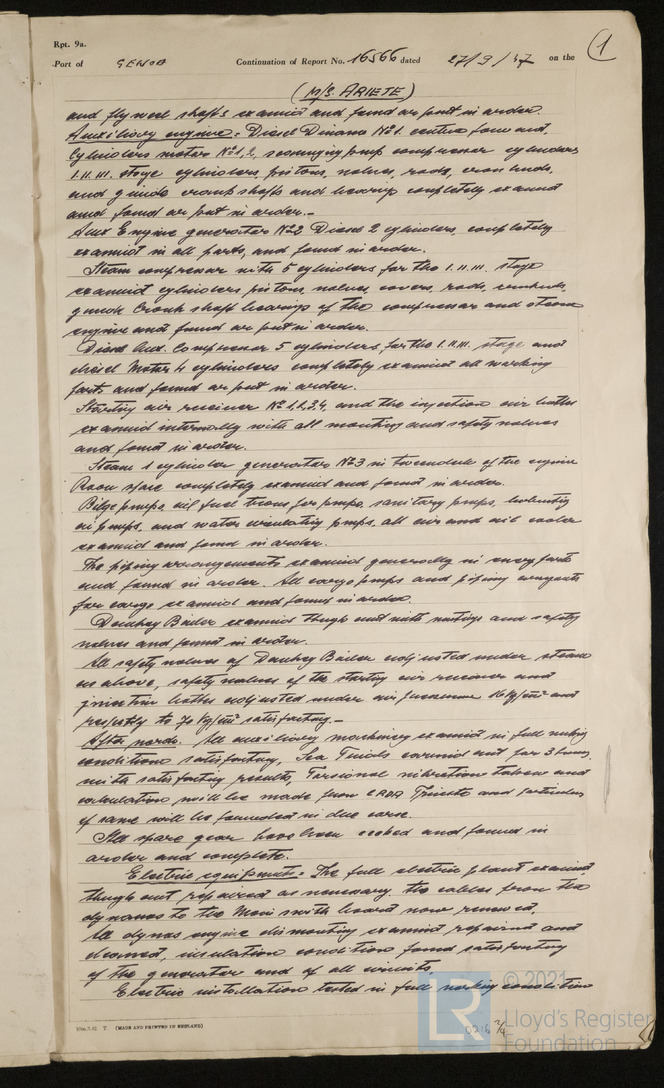 Rpt. 9a.
1
Port of GENOA Continuation of Report No. 16566 dated 27/9/47 on the
(M/S. ARIETE)
and flyweel shafts examind and found or putt in order.
Auxiliary engine: Diesel Dinamo No 1. centre fore and,
Cylinders motor No 1,2, scavenging pump compresser cylinders
I. II. III. stage cylinders, pistons, valves, rods, cross heads,
and guide crank shafts and bearing completely examind
and found or put in order.-
Aux Engine generator No 2 Diesel 2 cylinders, completely
examind in all parts, and found in order.
Steam compresser with 5 cylinders for the I. II. III. stage
examind cylinders pistons, valves covers, rods,
guide Crank shaft bearings of the compresser and steam
engine and found or put in order.
Diesel Aux. Compresser 5 cylinders for the I. II. III. stage and
diesel Motor 4 cylinders completely examind all working
parts and found or put in order.
Starting air receiver No 1,2,3,4, and the injection air bottles
examind internally with all mounting and safety valves
and found in order.
Steam 1 cylinder generator No 3 in of the engine
Room space completely examind and found in order.
Bilge pumps, oil fuel trans, fer pumps, sanitary pumps,
oil pumps, and water circulating pumps, all air and oil cooler
examind and found in order.
The piping arrangements examind generally in every parts
and found in order. All cargo pumps and piping
for cargo examind and found in order.
Donkey Boiler examind though out with mountings and safety
valves and found in order.
All safety valves of Donkey Boiler adjusted under steam
as above, safety valves of the starting air receiver and
injection bottles adjusted under air pressure 16 kg/cm² and
to 70 kg/cm² satisfactory.-
After wards. All auxiliary machinery examind in full working
condition satisfactory, Sea Trials carried out for 3 hours
with satisfactory results, Torsional vibration taken and
calculation will be made from CRDA Trieste and particulars
of same will be forwarded in due corse.
All spare gear have been cecked and found in
order and complete.
Electric equipments: The full electric plant examind
though out repaired as necessary. the cables from the
dynamos to the Main swith board now renewed.
All dynos engine dismounting examind repaired and
cleaned, insulation condition found satisfactory
of the generator and of all circuits.
Electric installation tested in full working condition
10m.7.45 T. (MADE AND PRINTED IN ENGLAND)
LR
© 2021
Lloyd's Register
Foundation
0216 2/4